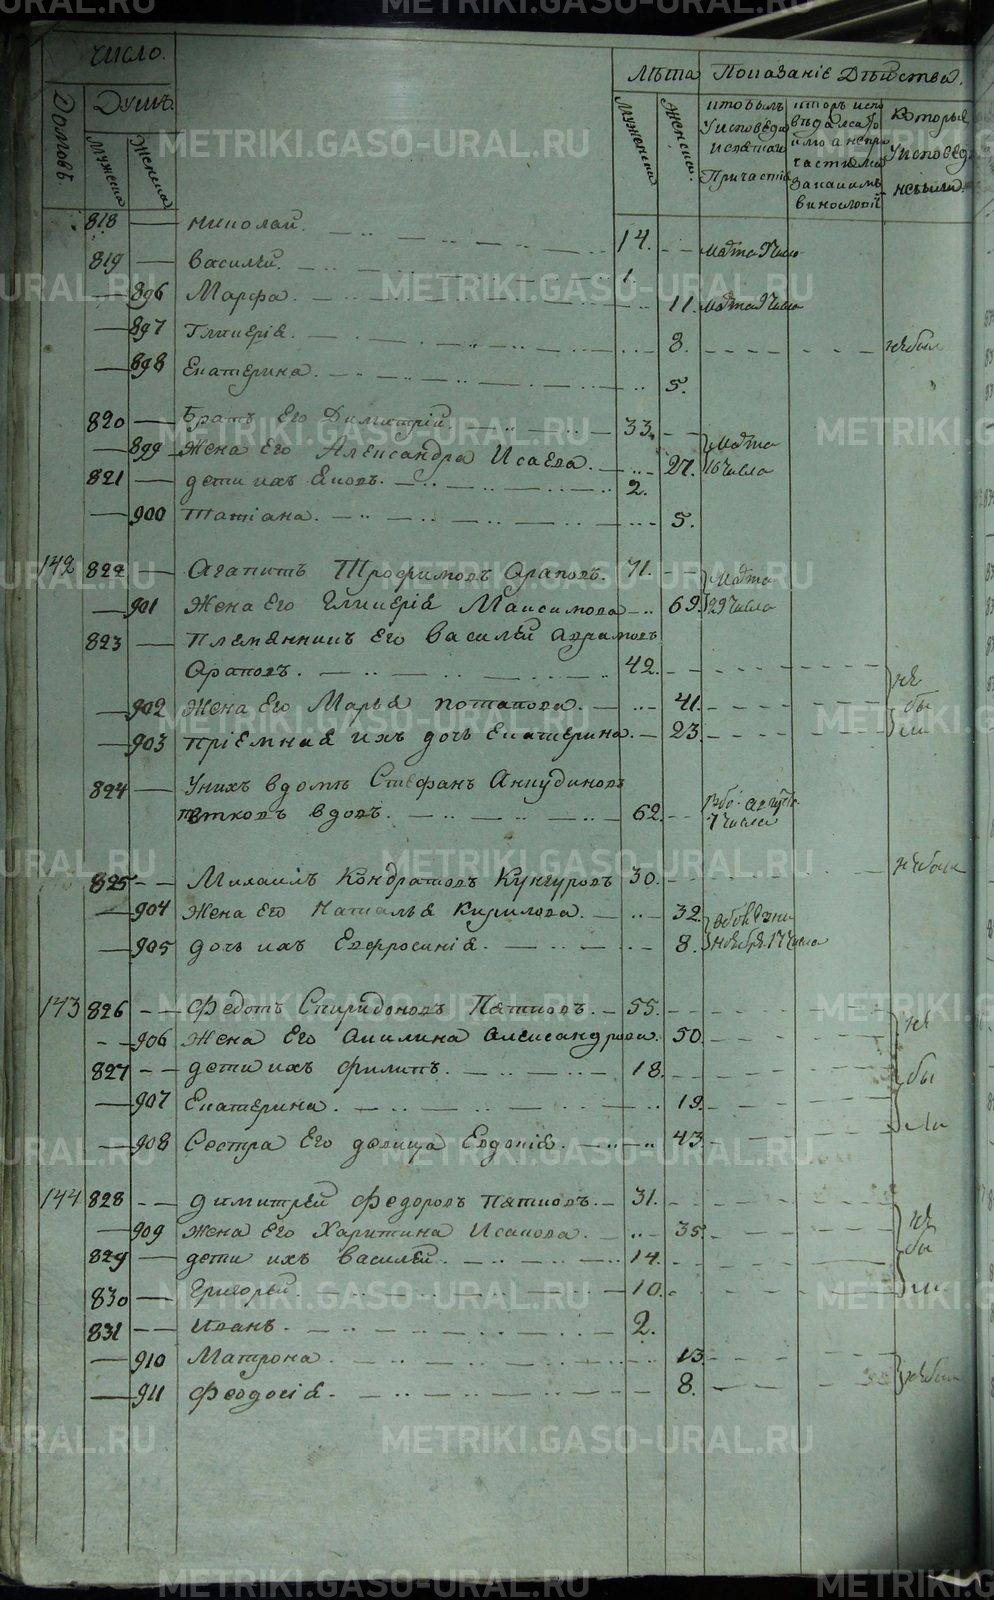 Число.
Лѣта Показаніе Дѣйства.
Домовъ.
Душъ.
Мужеска
Женска
Мужеска
Женска.
818 Николай. 14. Марта 9 Число
819 Василей. 1.
896 Марфа. 11. Марта 9 Число
897 Гликеріѧ. 8. не был
898 Екатерина. 5.
820 Братъ Его Димитрій. 33.
899 Жена Его Александра Исаева. 27. Марта
821 дети ихъ Яковъ. 2. 16 Числа
900 Татіана. 5.
142 822 Агапитъ Трофимовъ Араповъ. 71. Марта
901 Жена Его Гликеріѧ Максимова 69. 29 Числа
823 племѧнникъ Его Василей Абрамовъ
Араповъ. 42. не
902 Жена Его Марьѧ потапова. 41. бы
903 пріемнаѧ ихъ дочь Екатерина. 23. ли
824 У нихъ в домѣ Стефанъ Анкудиновъ
Пѧтковъ вдовъ. 62. 7 числа
825 Михаилъ Кондратовъ Кунгуровъ 30. не был
904 Жена Его Наталья Кирилова. 32.
905 дочь ихъ Евфросиніѧ. 8. Ноября. 17 Числа
143 826 Федотъ Спиридоновъ Пѧтковъ. 55. не
906 Жена Его Акилина Александрова. 50.
827 дети ихъ Филипъ. 18. бы
907 Екатерина. 19.
908 Сестра Его девица Евдокіѧ. 43. ли
144 828 Димитрей Федоровъ Пѧтковъ. 31. не
909 Жена Его Харитина Исакова. 35. бы
829 дети ихъ Василей. 14.
830 Григорей. 10. ли
831 Иванъ. 2.
910 Матрона. 13 не был
911 Феодосіѧ. 8.
METRIKI.GASO-URAL.RU